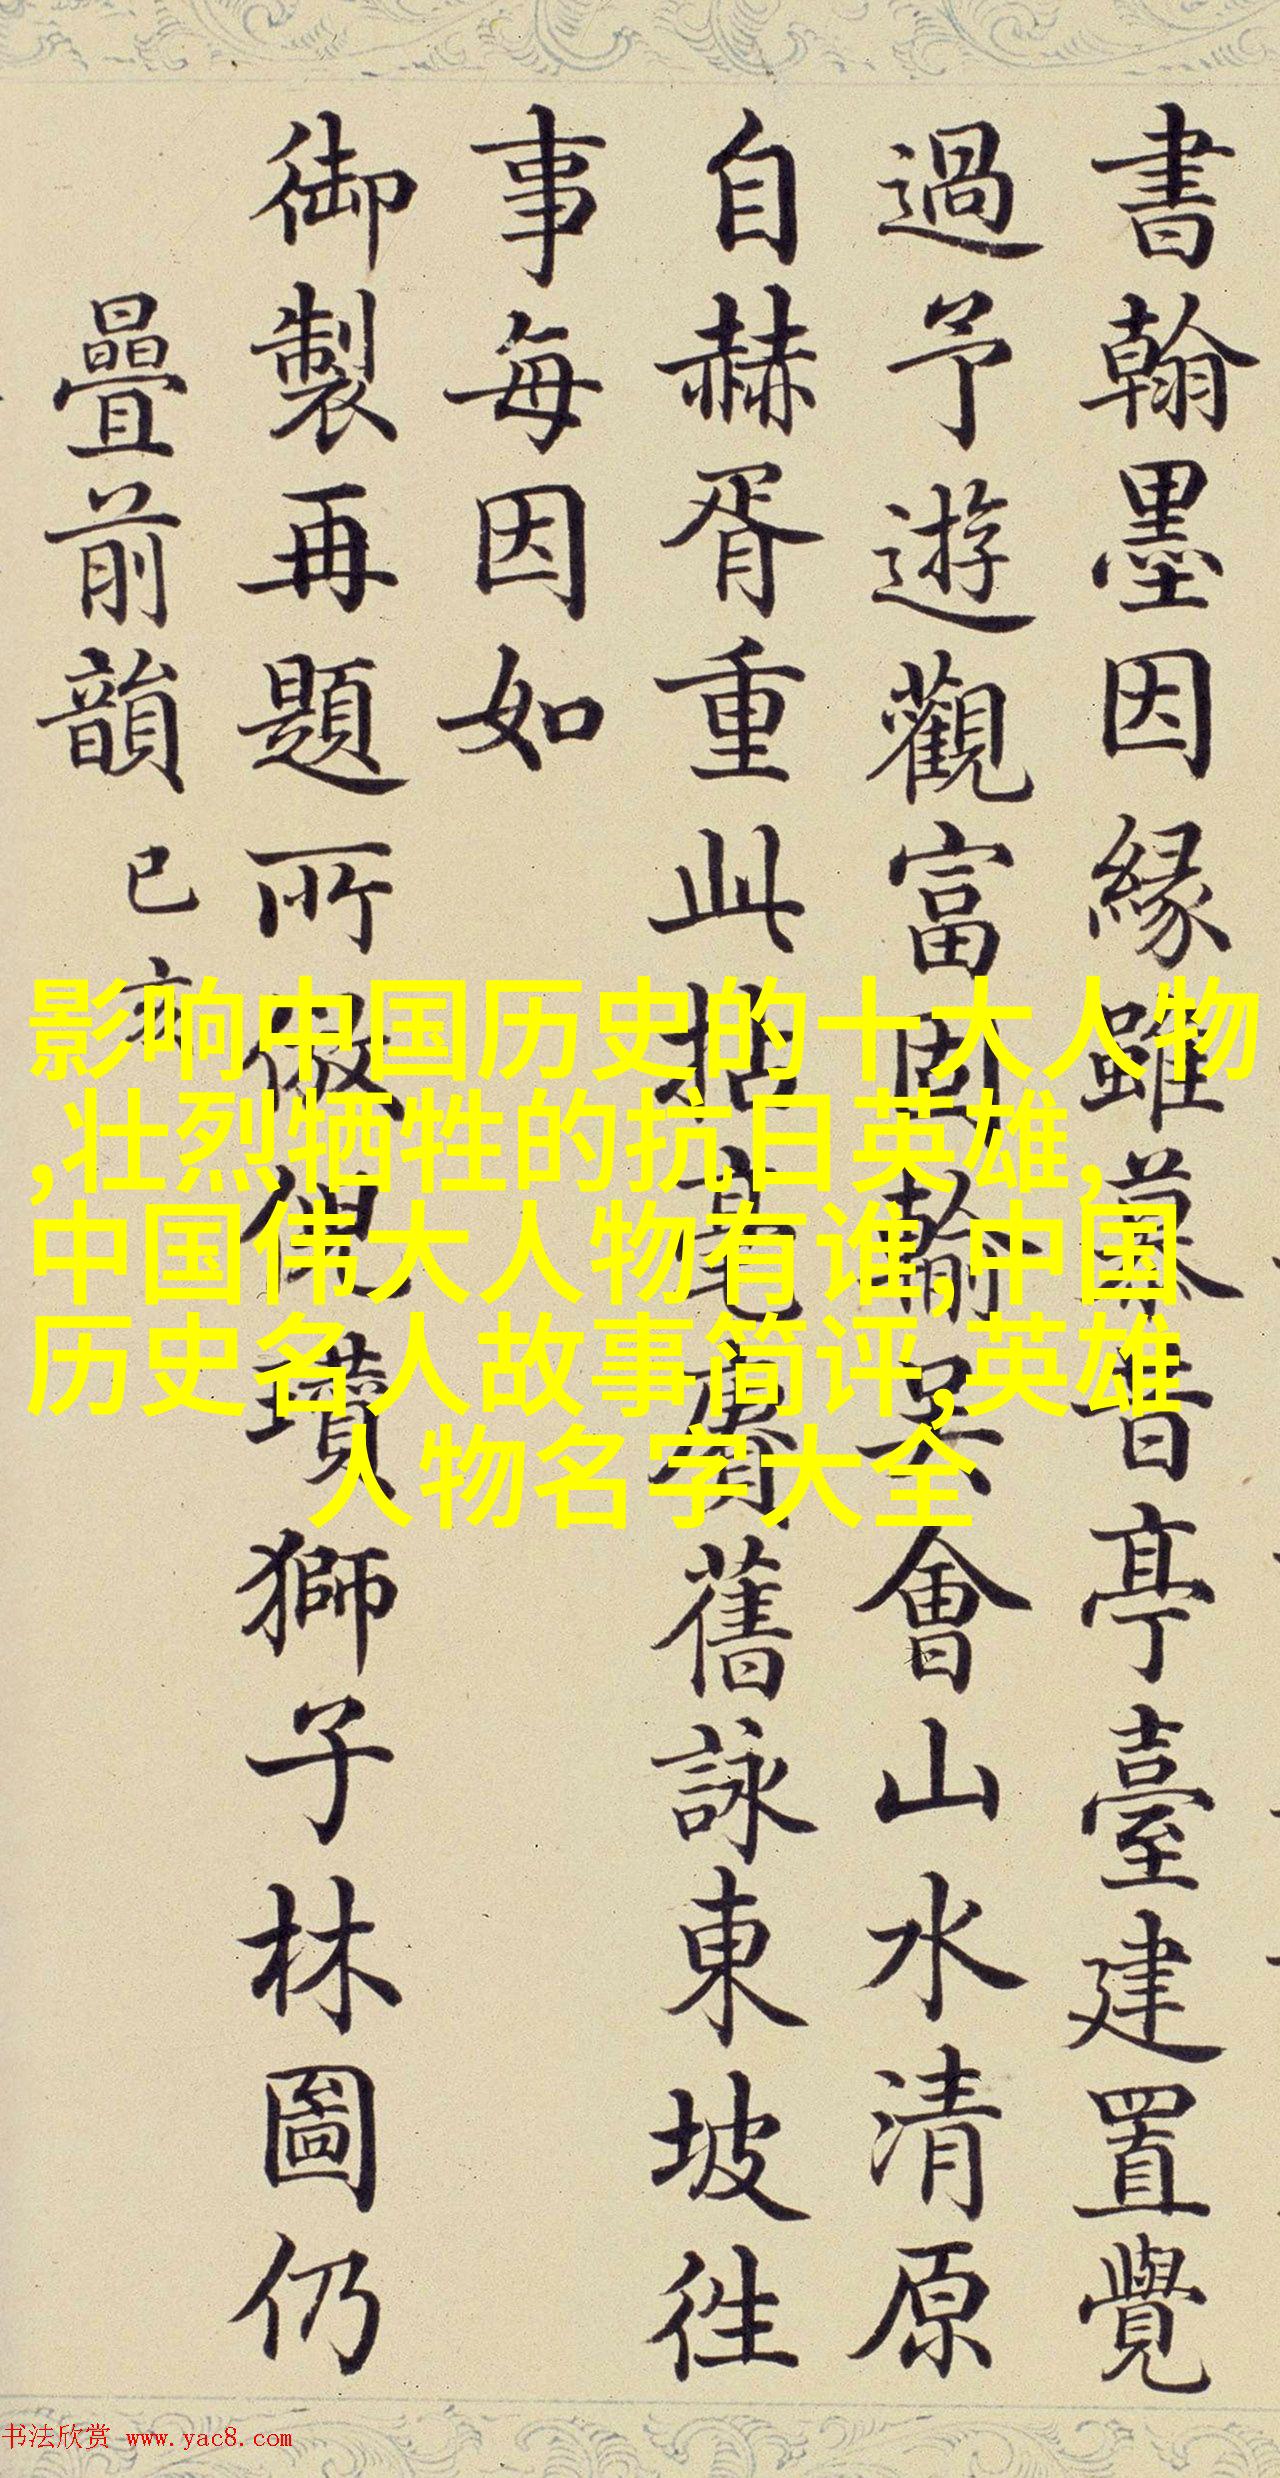 書翰墨因縁雖慕昔亭臺建置覺
過予遊觀富固輸吴會山水清原
自赫胥重此拈毫賡舊詠東坡徃
事每因如
御製再題所倣倪瓚獅子林圖仍
疊前韻 已亥
影响中国历史的十大人物
,壮烈牺牲的抗日英雄,
中国伟大人物有谁,中国
历史名人故事简评,英雄
人物名字大全
书法欣赏 www.yac8.com